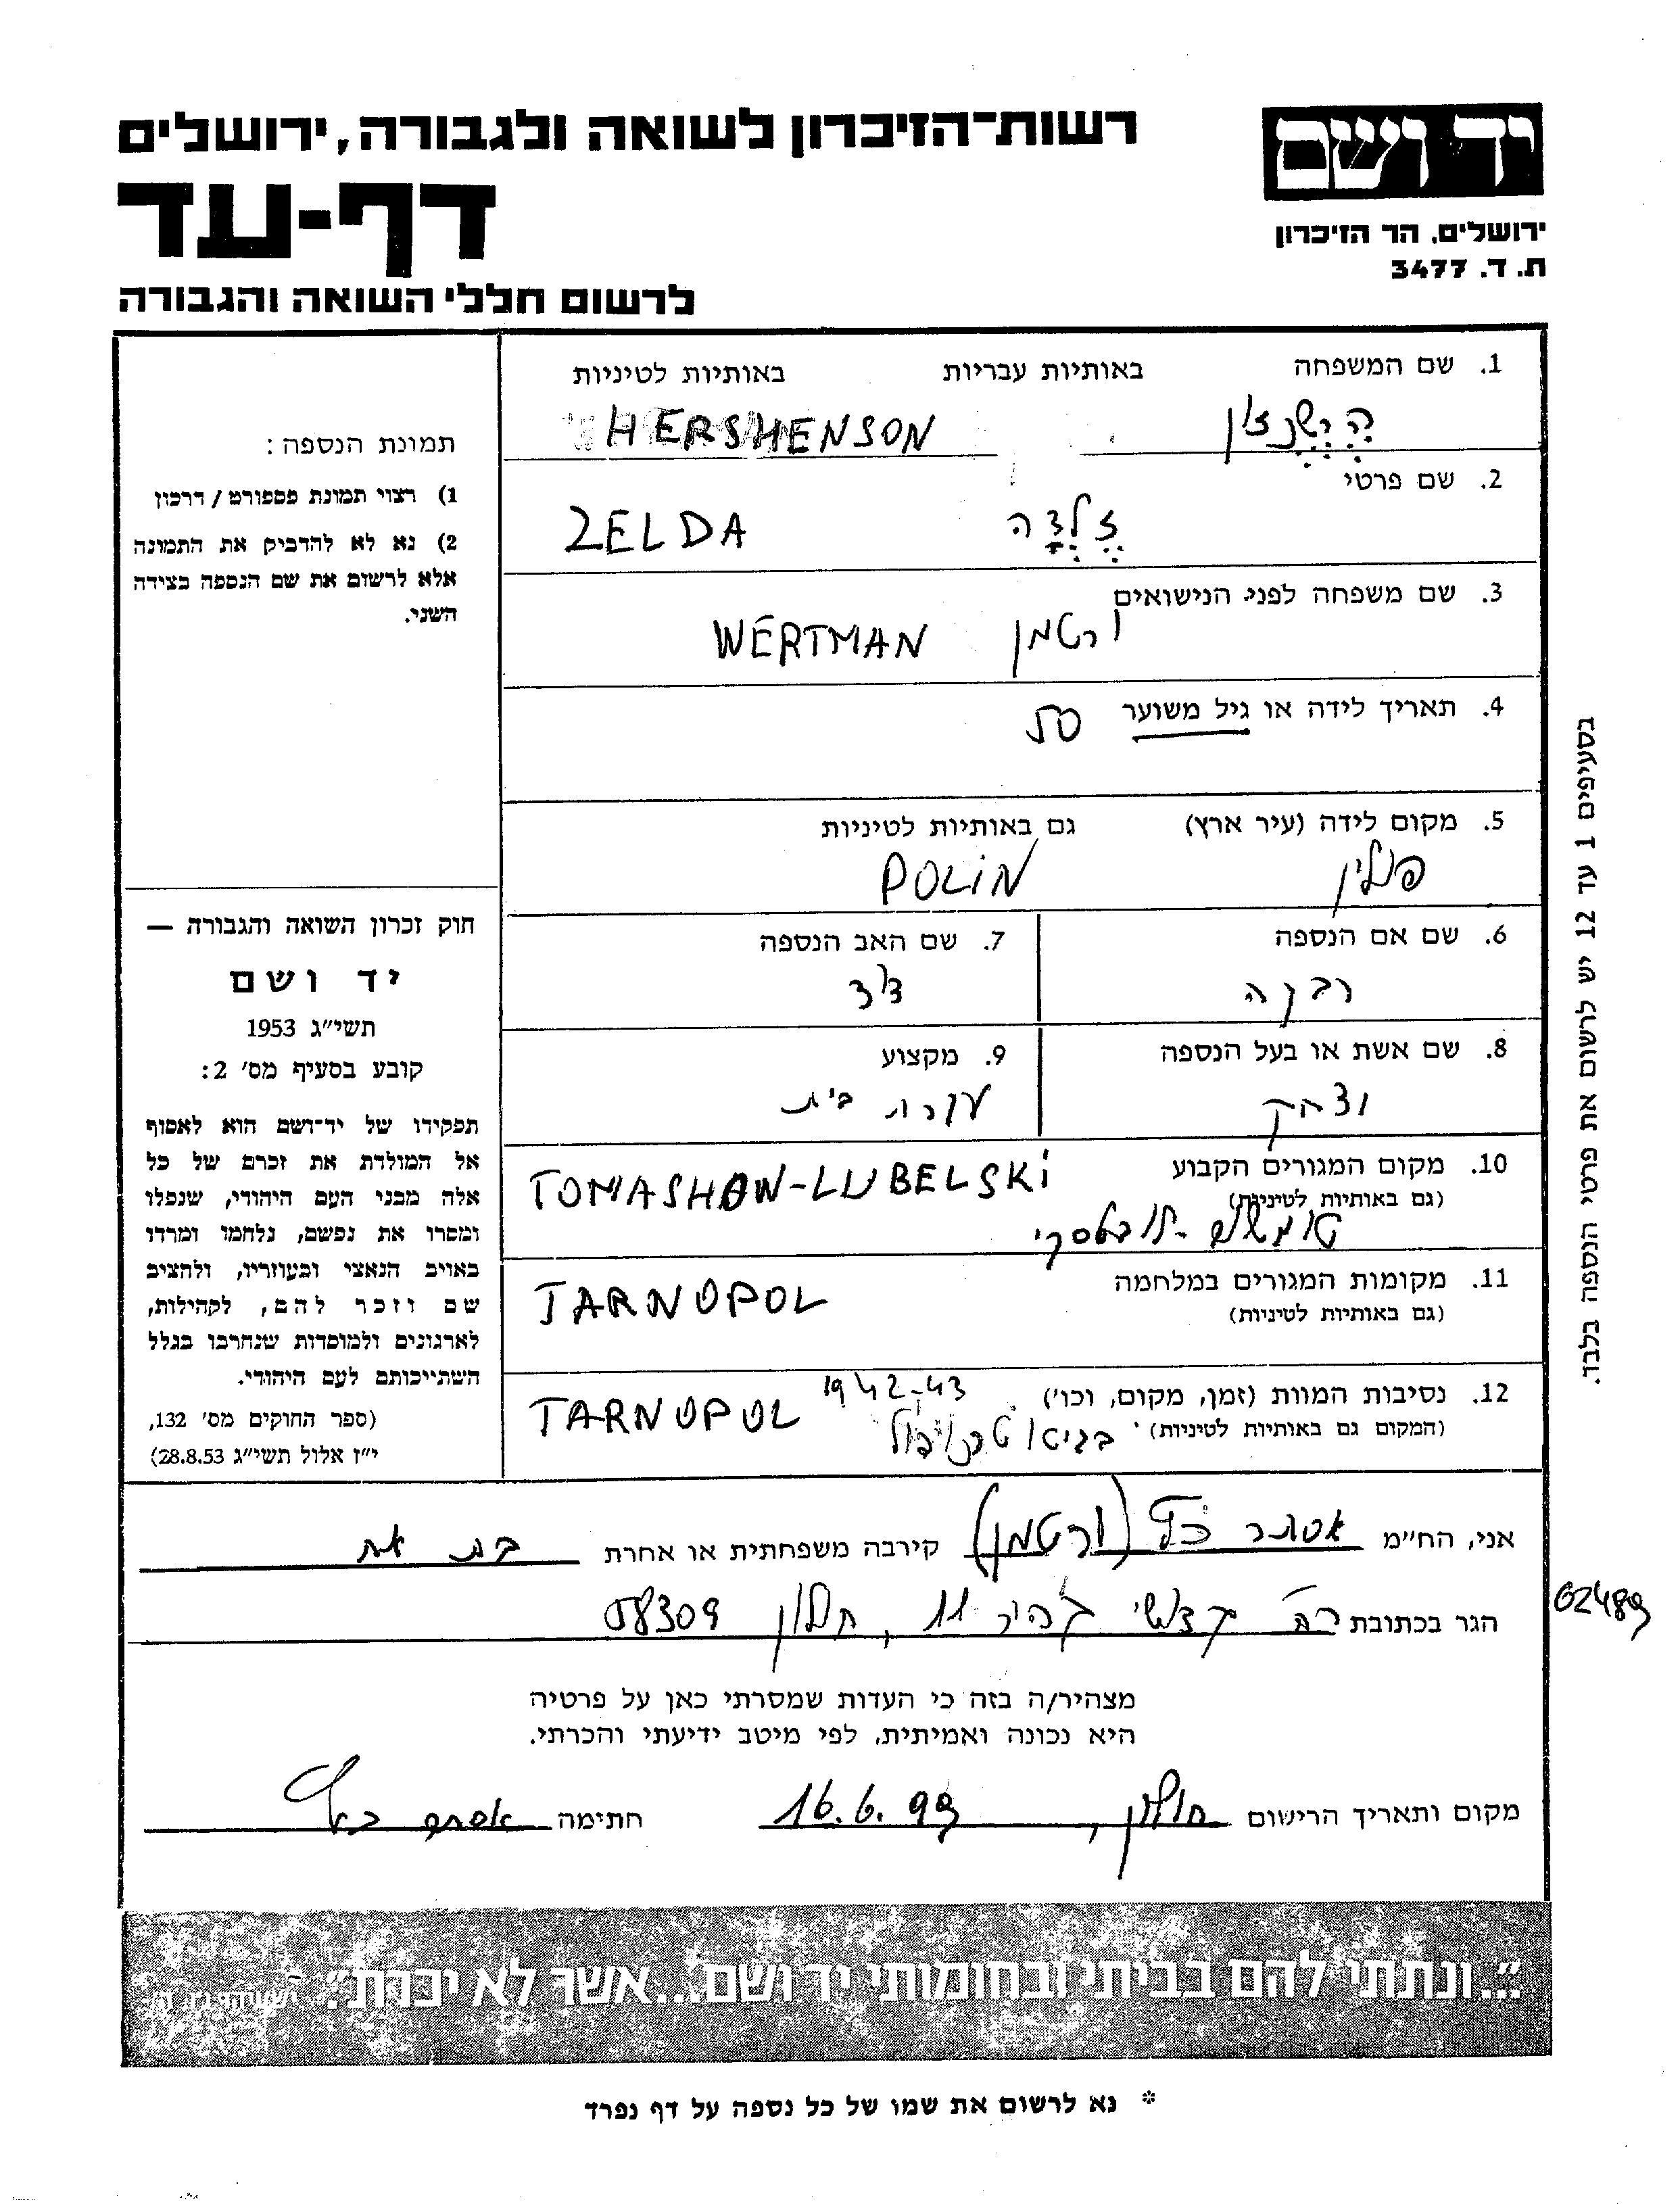 יד ושם
ירושלים, הר הזיכרון
ת. ד. 3477
רשות-הזיכרון לשואה ולגבורה, ירושלים
דף-עד
לרשום חללי השואה והגבורה
1. שם המשפחה באותיות עבריות באותיות לטיניות
הֶרְשֶׁנְזוֹן HERSHENSON
2. שם פרטי
זֶלְדָה ZELDA
3. שם משפחה לפני הנישואים
ורטמן WERTMAN
4. תאריך לידה או גיל משוער 50
5. מקום לידה (עיר ארץ) גם באותיות לטיניות
פולין POLIN
6. שם אם הנספה 7. שם האב הנספה
רבקה דוד
8. שם אשת או בעל הנספה 9. מקצוע
יצחק עקרת בית
10. מקום המגורים הקבוע TOMASHOW-LUBELSKI
(גם באותיות לטיניות)
טומשוב-לובלסקי
11. מקומות המגורים במלחמה TARNOPOL
(גם באותיות לטיניות)
12. נסיבות המוות (זמן, מקום, וכו') 1942-43 TARNOPOL
(המקום גם באותיות לטיניות) בגיטו טרנופול
תמונת הנספה:
1) רצוי תמונת פספורט / דרכון
2) נא לא להדביק את התמונה
אלא לרשום את שם הנספה בצידה
השני.
חוק זכרון השואה והגבורה —
יד ושם
תשי״ג 1953
קובע בסעיף מס' 2:
תפקידו של יד־ושם הוא לאסוף
אל המולדת את זכרם של כל
אלה מבני העם היהודי, שנפלו
ומסרו את נפשם, נלחמו ומרדו
באויב הנאצי ובעוזריו, ולהציב
שם וזכר להם, לקהילות,
לארגונים ולמוסדות שנחרבו בגלל
השתייכותם לעם היהודי.
(ספר החוקים מס' 132,
י״ז אלול תשי״ג 28.8.53)
בסעיפים 1 עד 12 יש לרשום את פרטי הנספה בלבד.
אני, הח״מ אסתר כץ (ורטמן) קירבה משפחתית או אחרת בת אח
הגר בכתובת רח' קדושי קהיר 11, חולון 58309
02489
מצהיר/ה בזה כי העדות שמסרתי כאן על פרטיה
היא נכונה ואמיתית, לפי מיטב ידיעתי והכרתי.
מקום ותאריך הרישום חולון, 16.6.99 חתימה אסתר כץ
״...ונתתי להם בביתי ובחומותי יד ושם...אשר לא יכרת״. ישעיהו נו, ה׳
* נא לרשום את שמו של כל נספה על דף נפרד